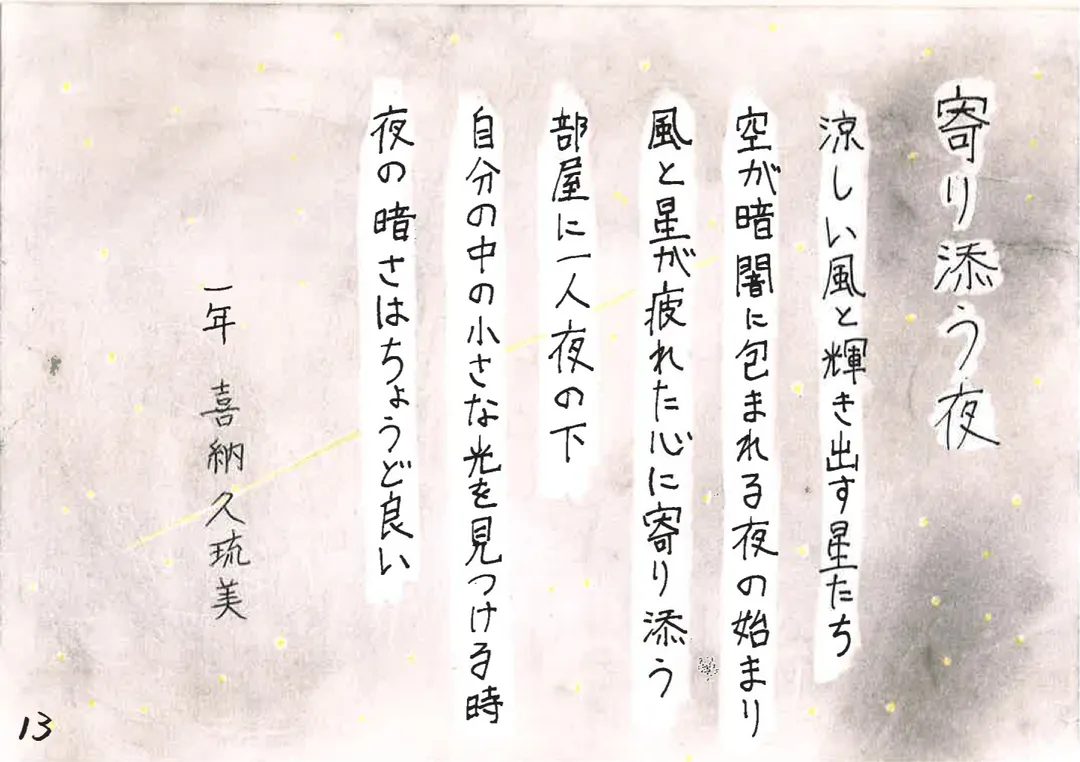 寄り添う夜
涼しい風と輝き出す星たち
空が暗闇に包まれる夜の始まり
風と星が疲れた心に寄り添う
部屋に一人夜の下
自分の中の小さな光を見つける時
夜の暗さはちょうど良い
一年 喜納久琉美
13